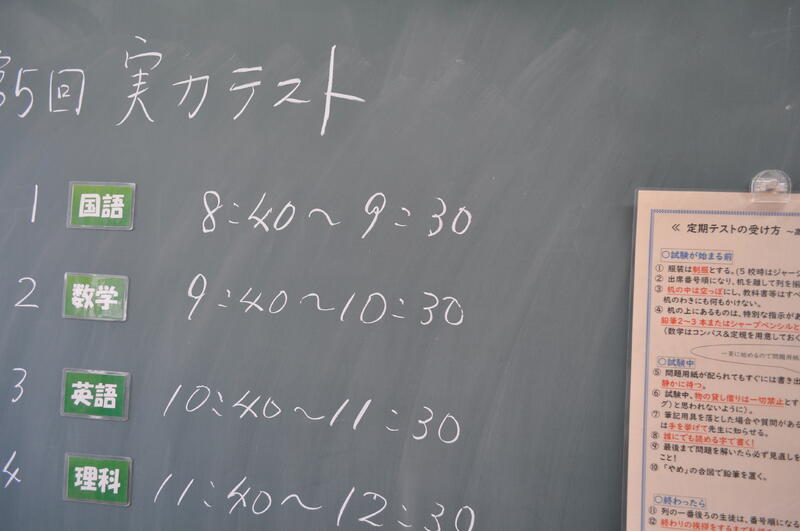 第5回 実力テスト
1 国語 8:40～9:30
2 数学 9:40～10:30
3 英語 10:40～11:30
4 理科 11:40～12:30
≪ 定期テストの受け方 ～
○試験が始まる前
① 服装は制服とする。(5校時はジャー
② 出席番号順になり、机を離して列を
③ 机の中は空っぽにし、教科書等はす
机のわきにも何もかけない。
④ 机の上にあるものは、特別な指示が
鉛筆2～3本またはシャープペンシルと
(数学はコンパス&定規を用意しておく
一斉に始めるので問題用紙
○試験中
⑤ 問題用紙が配られてもすぐには書き出
静かに待つ。
⑥ 試験中、物の貸し借りは一切禁止とす
グ)と思われないように)。
⑦ 筆記用具を落とした場合や質問がある
は手を挙げて先生に知らせる。
⑧ 誰にでも読める字で書く!
⑨ 最後まで問題を解いたら必ず見直しを
こと!
⑩ 「やめ」の合図で鉛筆を置く。
○終わったら
⑪ 列の一番後ろの生徒は、番号順にな
⑫ 終わりの挨拶をするまで